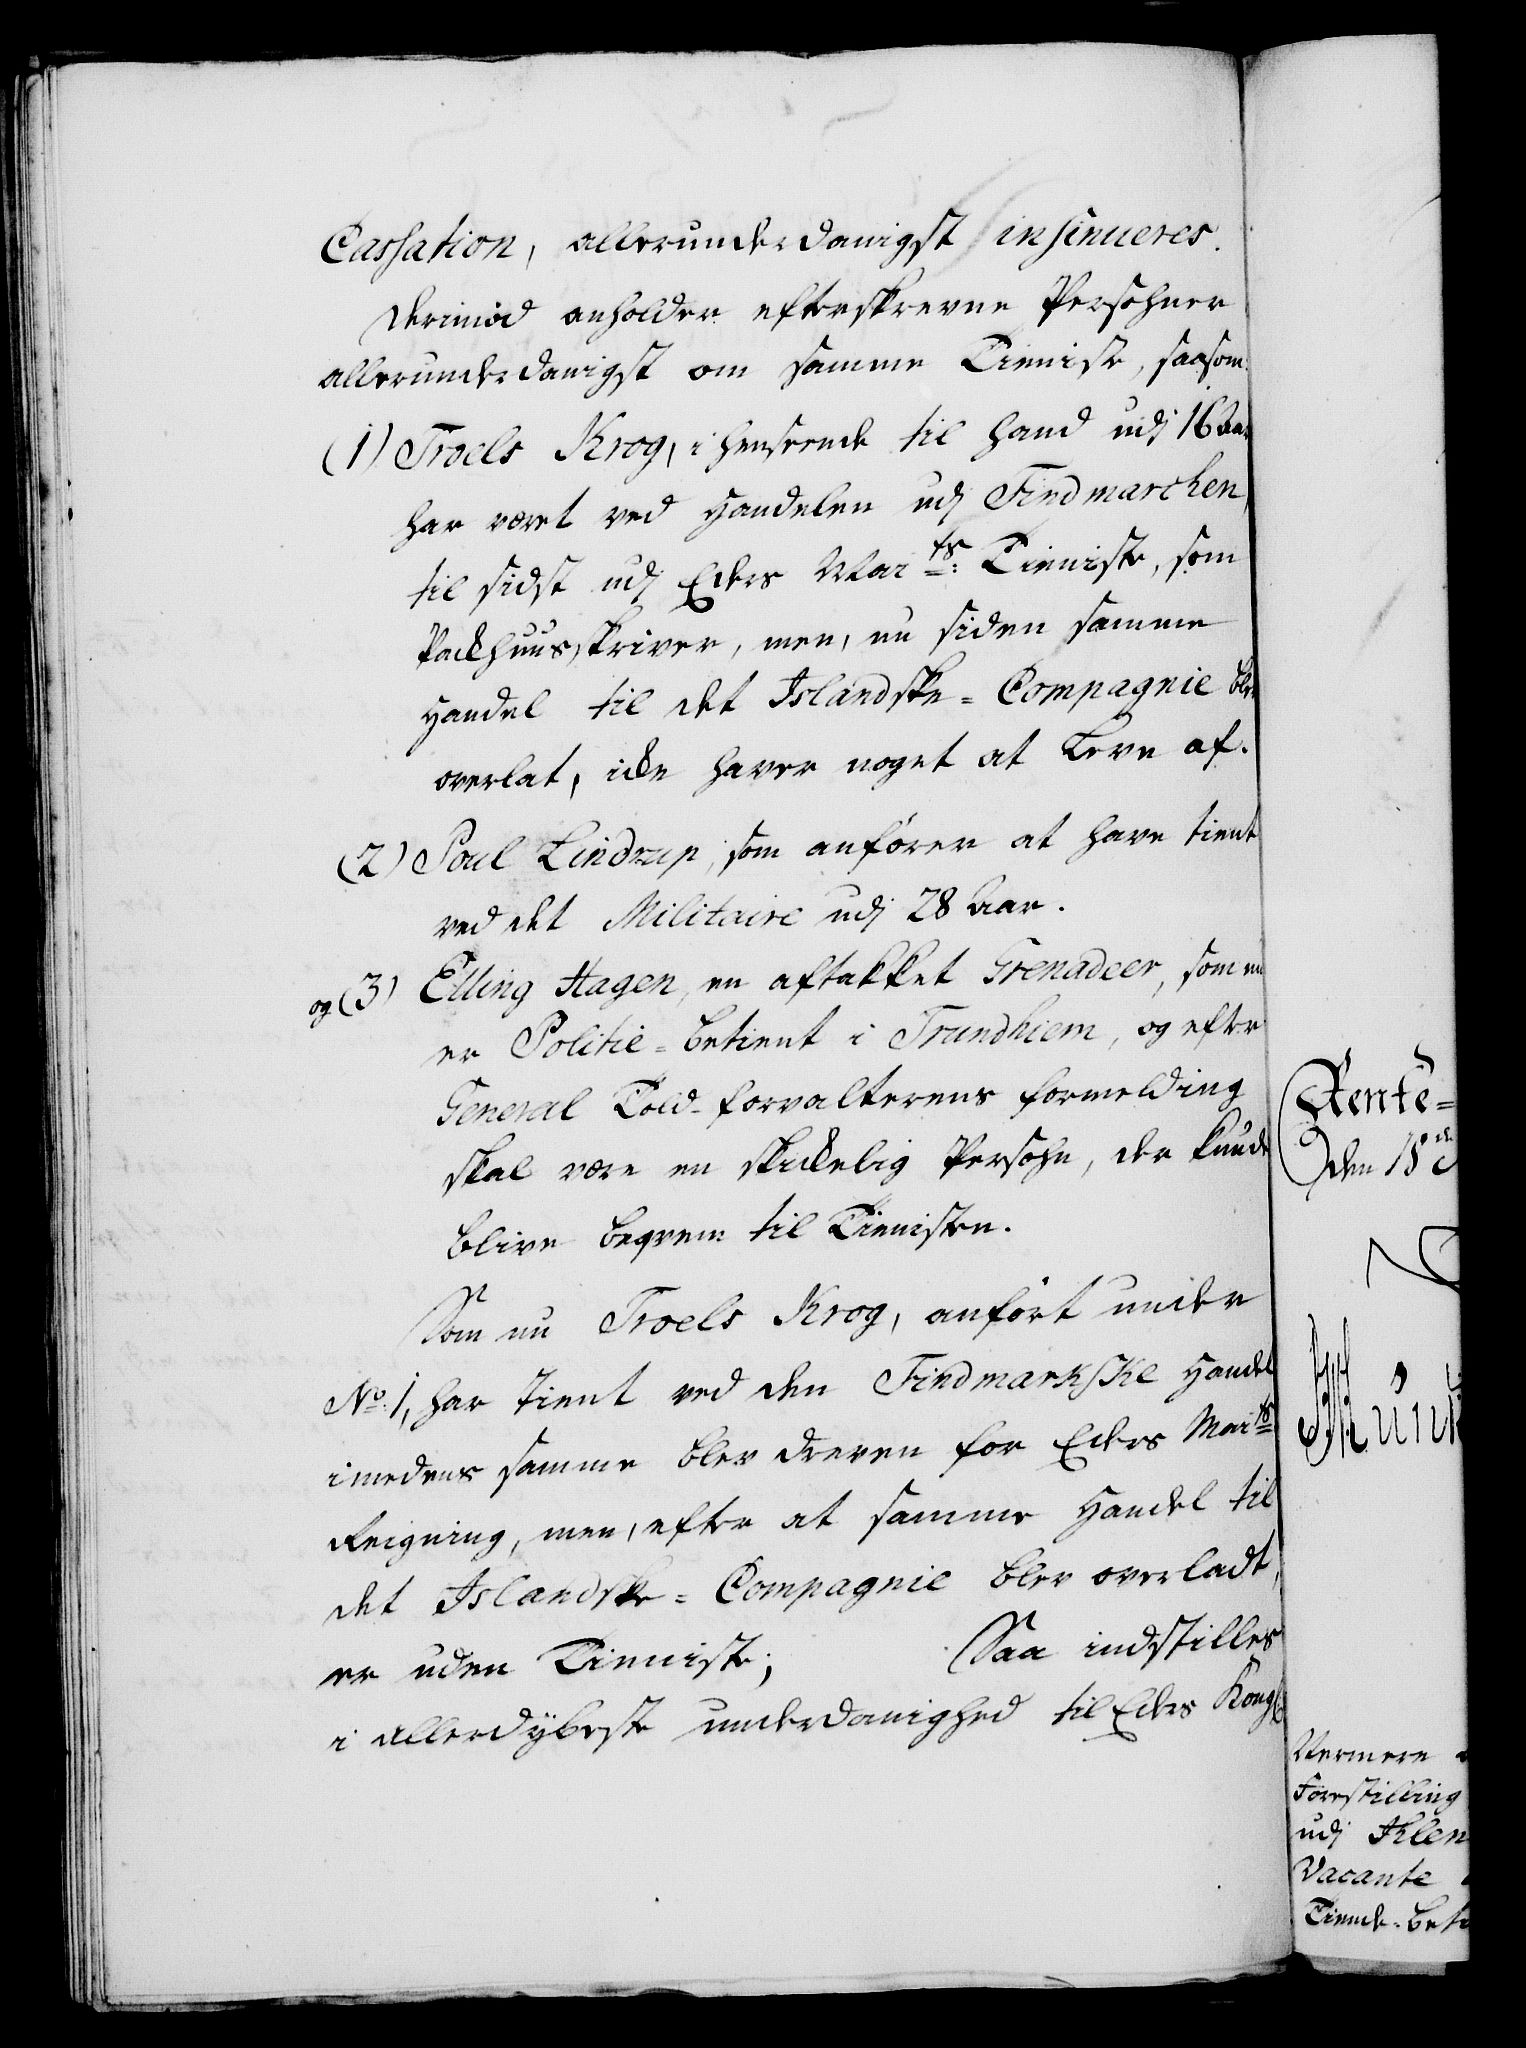 Cassation, allerunderdanigst insinueres.
Derimod anholder efterskrevne Persohner
allerunderdanigst om samme Tieniste, saasom
(1) Troels Krog, i henseende til hand udj 16 Aar
har været ved Handelen udj Findmarchen,
til sidst udj Eders Maits: Tieniste, som
Pakhuusskriver, men, nu siden samme
Handel til det Islandske=Compagnie blev
overlat, icke haver noget at Leve af.
(2) Poul Lindrup, som anfører at have tient
ved det Militaire udj 28 Aar.
og (3) Elling Hagen, en aftakket Grenadeer, som nu
er Politie=betient i Trundhiem, og efter
General Told-forvalterens formelding
skal være en skickelig Persohn, der kunde
blive beqvem til Tienisten.
Som nu Troels Krog, anført under
No: 1, har tient ved den Findmarkske Handel
imedens samme blev dreven for Eders Maits
Reigning, men, efter at samme Handel til
det Islandske=Compagnie blev overladt,
er uden Tieniste; Saa indstilles
i allerdybeste underdanighed til Eders Kongl:
Rente=
den 18de
Nermere
Forestilling
udj
Vacante
Tiende-bet